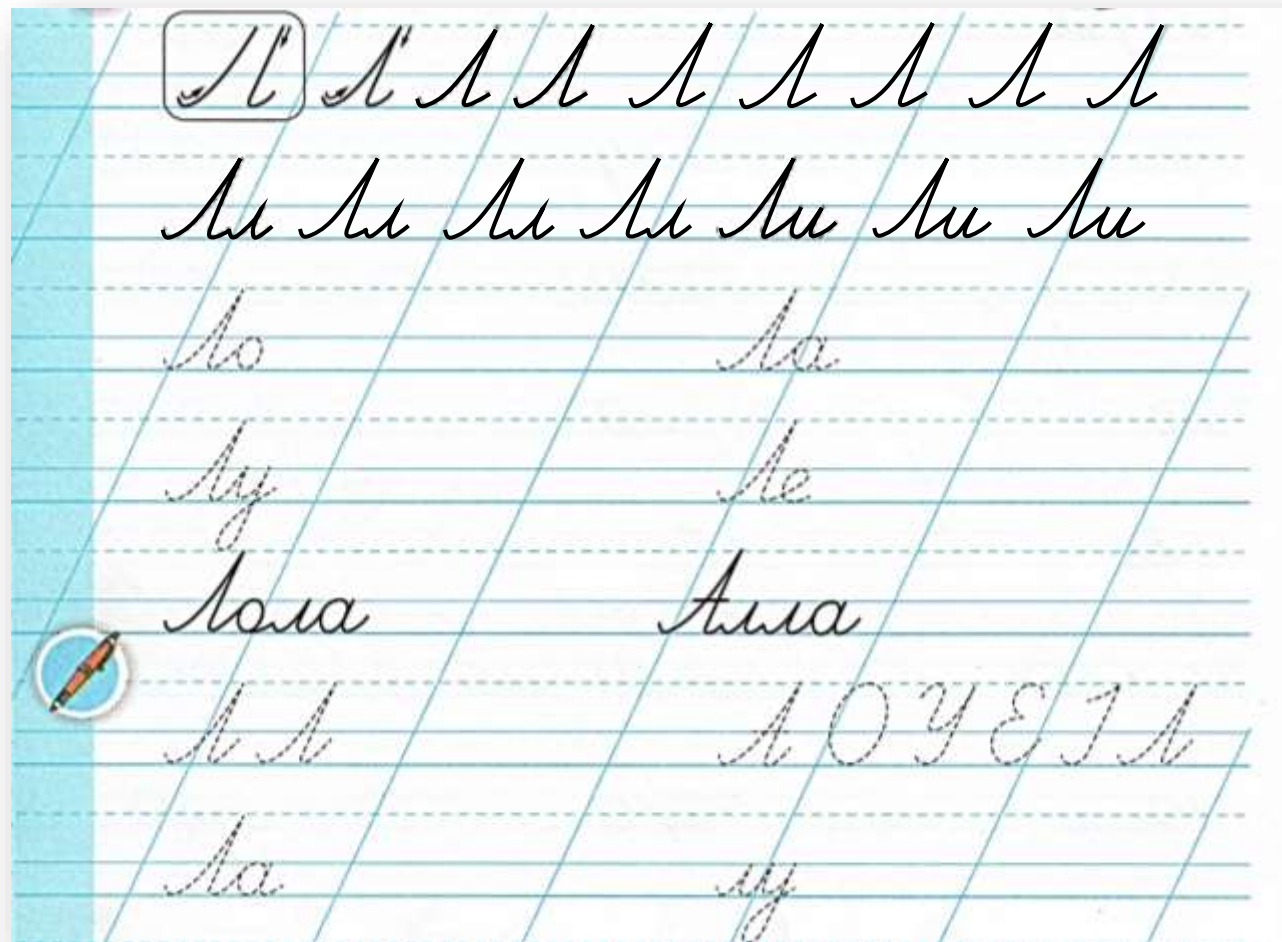 Л Л Л Л Л Л Л Л Л
Лл Лл Лл Лл Ли Ли Ли
Ло Ла
Лу Ле
Лола Алла
Л Л А О У Е І Л
Ла лу